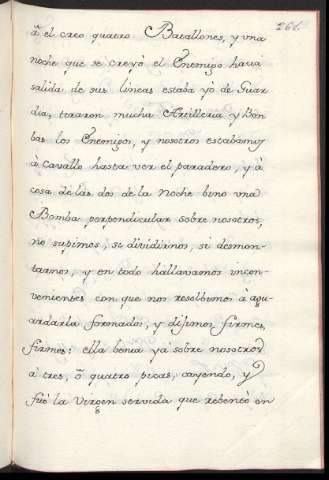 261.
ã el creo quatro Batallones, y vna
noche que se creyó el Enemigo havia
salida de sus lineas estaba yò de Guar
dia, tiraron mucha Artilleria y Bon
bas los Enemigos, y nosotros estabamos
à Cavallo hasta ver el paradero, y à
cosa de las dos de la Noche bino vna
Bomba perpendicular sobre nosotros,
no supimos, si dividirnos, si desmon-
tarnos, y en todo hallavamos incon-
venientes con que nos resolbimos à agu-
ardarla formados, y diximos firmes,
firmes: ella benia yà sobre nosotros
à tres, ô quatro picas, cayendo, y
fuè la Virgen servida que rebentò en